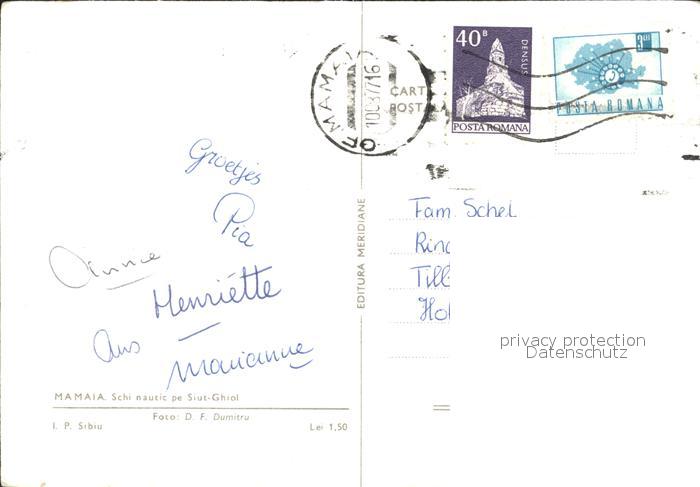 Groetjes
Pia
Henriétte
Ans
Marianne
MAMAIA. Schi nautic pe Siut-Ghiol
Foto: D. F. Dumitru
I. P. Sibiu
Lei 1,50
EDITURA MERIDIANE
MAMAIA
CART
POSTALA
40B
DENSUS
POSTA ROMANA
POSTA ROMANA
Fam. Schel
Rin
Till
Hol
privacy protection
Datenschutz